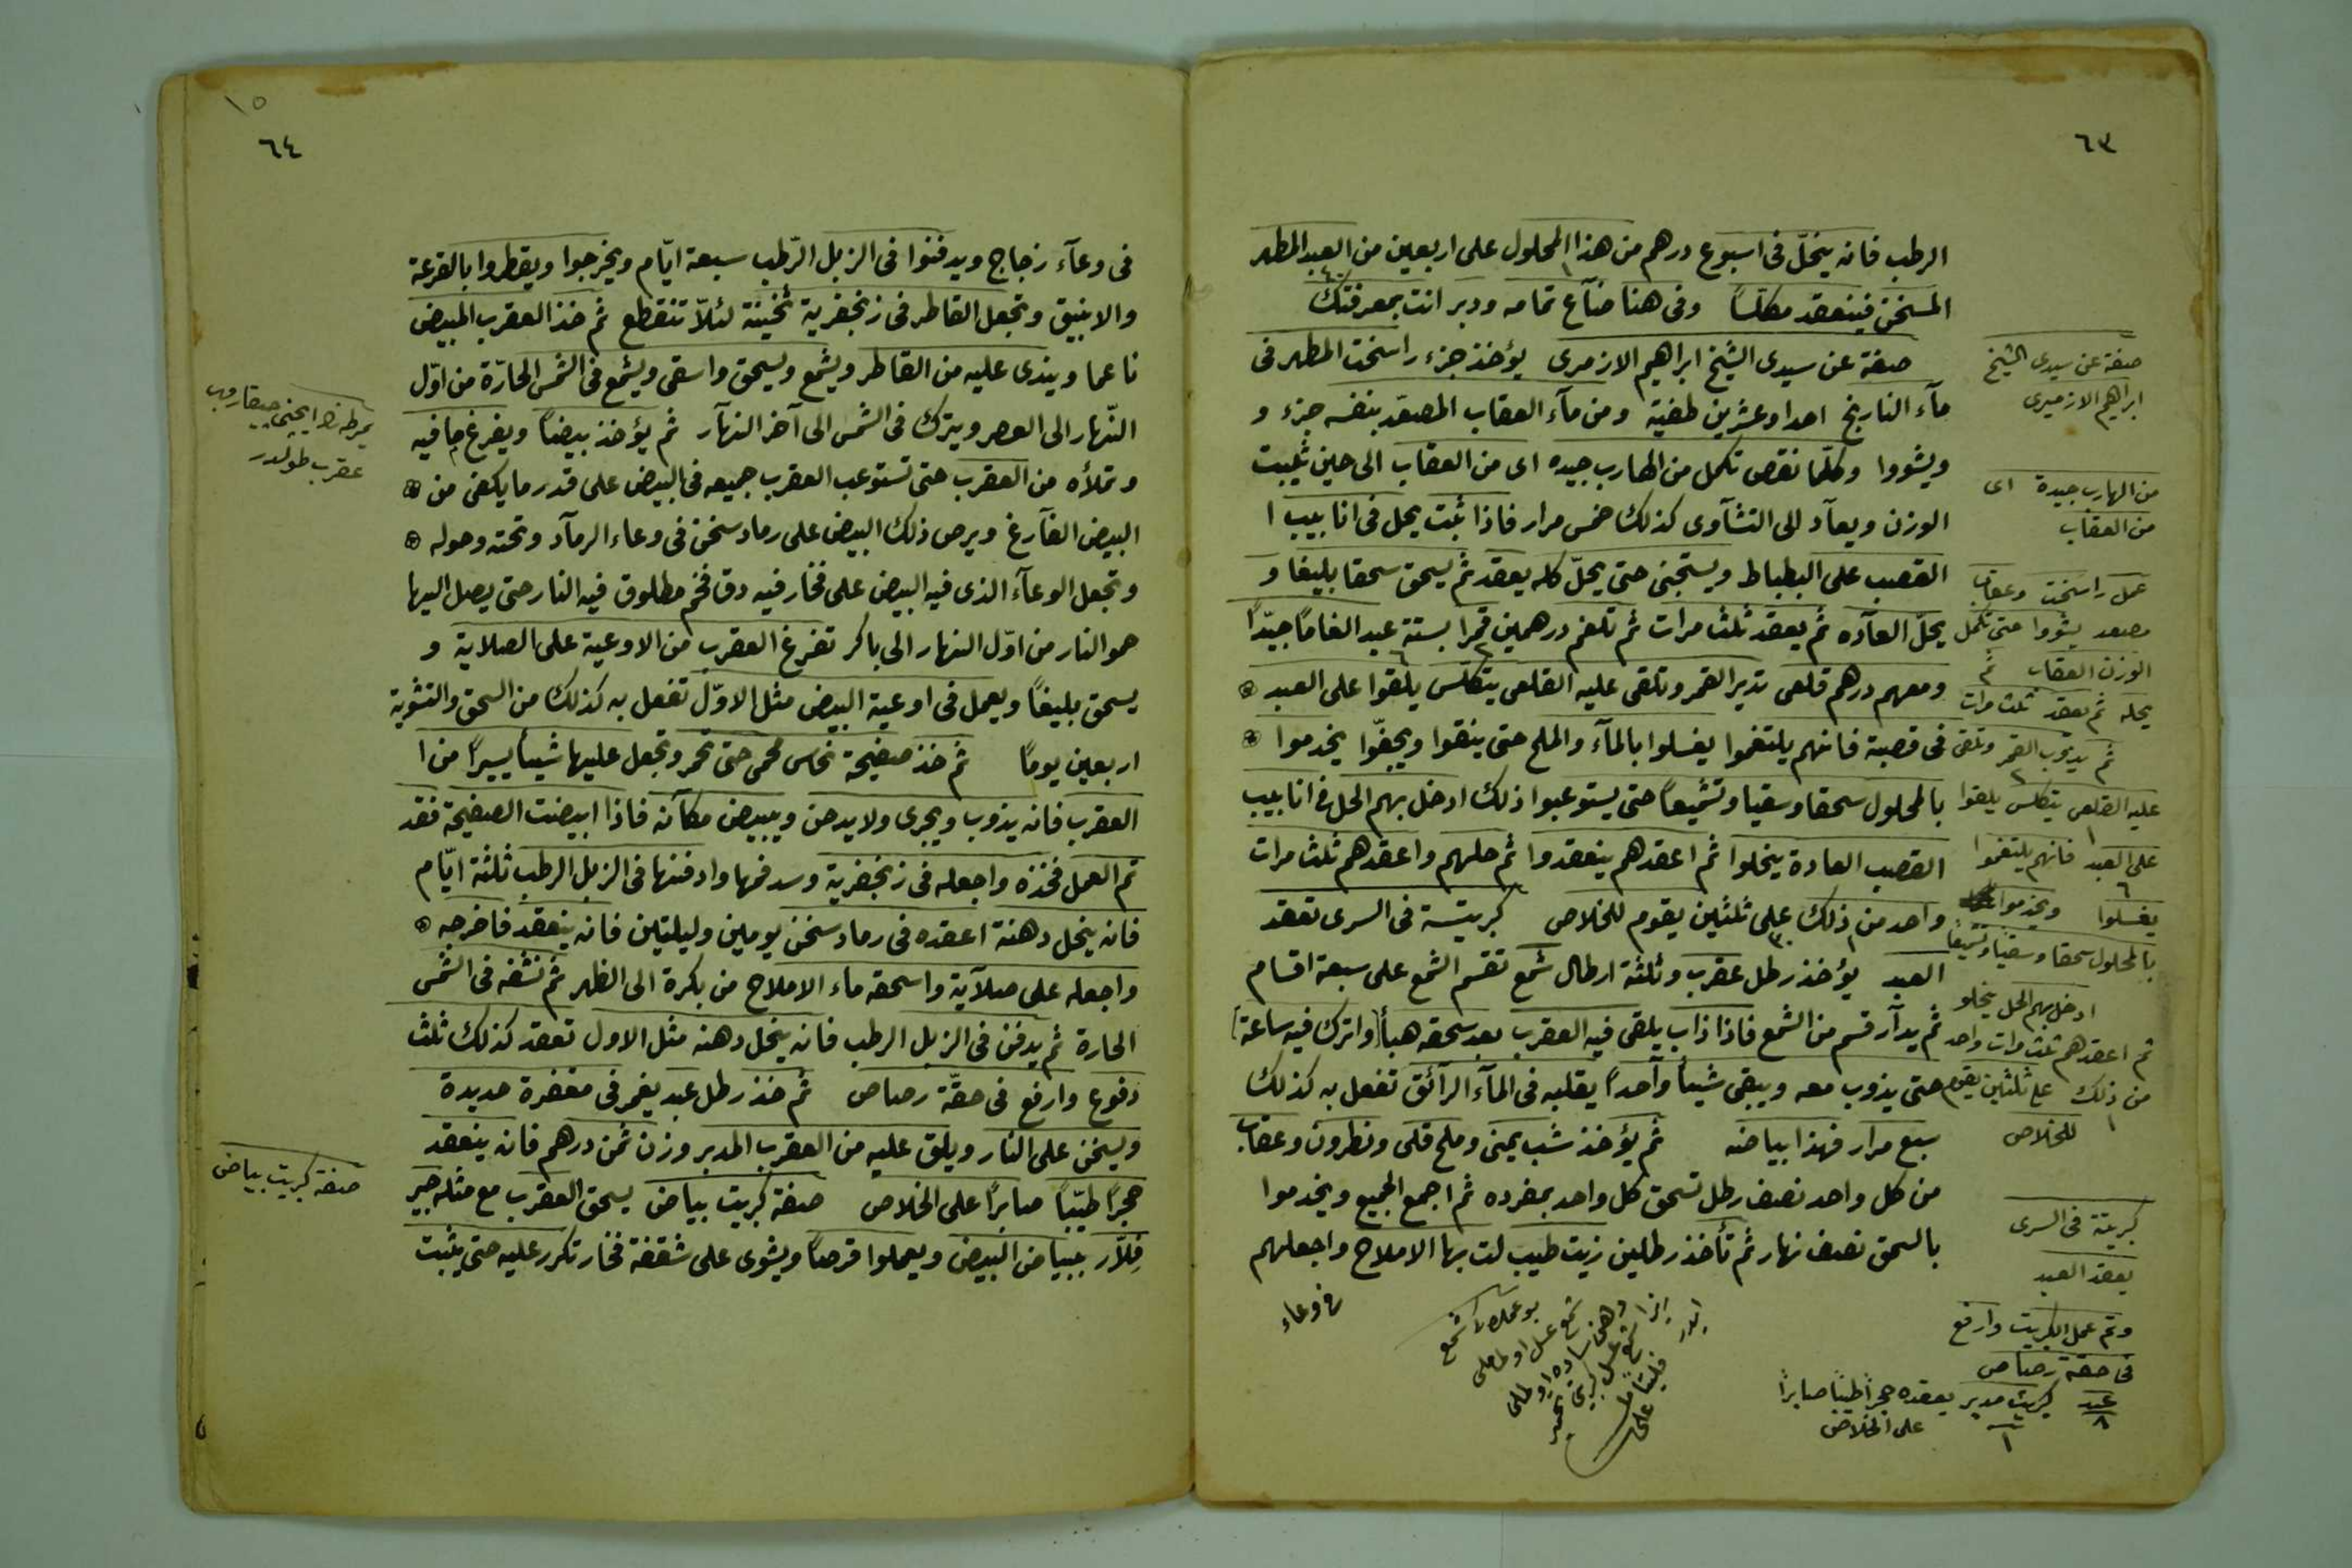 ٦٣
الرطب فانه ينحلّ فى اسبوع درهم من هذا المحلول على اربعين من العبد المطهر
المسخن فينعقد مكلّسًا وفى هنا ضآع تمامه ودبر انت بمعرفتك
صفة عن سيدى الشيخ ابراهيم الازمرى يؤخذ جزء راسخت المطهر فى
مآء النارنج احدا وعشرين طفية ومن مآء العقاب المصعّد بنفسه جزء و
ويشووا وكلّما نقص تكمل من الهارب جيده اى من العقاب الى حين ثبيت
الوزن ويعآد الى التشآوى كذلك خمس مرار فاذا ثبت يحل فى انابيب ا
القصب على البطباط ويستجنى حتى يحلّ كله يعقد ثم يسحق سحقا بليغا و
يحلّ العآده ثم يعقد ثلث مرات ثم تلغم درهمين قمرا بستة عبد الغامًا جيّدًا
ومعهم درهم قلعى تدير القمر وتلقى عليه القلعى يتكلّس يلقوا على العبد
فى قصبة فانهم يلتغموا يغسلوا بالمآء والملح حتى ينقوا ويجفّوا يخدموا
بالمحلول سحقا وسقيا وتشميعاً حتى يستوعبوا ذلك ادخل بهم الحل فى انابيب
القصب العادة ينحلوا ثم اعقدهم ينعقدوا ثم حلهم واعقدهم ثلث مرات
واحد من ذلك على ثلثين يقوم للخلاص كبريتة فى السرى تعقد
العبد يؤخذ رطل عقرب وثلثة ارطال شمع تقسم الشمع على سبعة اقسام
ثم يدآر قسم من الشمع فاذا ذاب يلقى فيه العقرب بعد سحقه هبأ واترك فيه ساعة
حتى يذوب معه ويبقى شيئاً وآحدًا يقلبه فى المآء الرآئق تفعل به كذلك
سبع مرار فهذا بياضه ثم يؤخذ شب يمنى وملح قلى ونطرون وعقاب
من كل واحد نصف رطل تسحق كل واحد بمفرده ثم اجمع الجميع ويخدموا
بالسحق نصف نهار ثم تأخذ رطلين زيت طيب لت بها الاملاح واجعلهم
فى وعاء
صفة عن سيدى الشيخ
ابراهيم الازميرى
من الهارب جيدة اى
من العقاب
عمل راسخت وعقاب
مصعد يشووا حتى تكمل
الوزن العقاب ثم
يحله ثم يعقد ثلث مرات
ثم يديوب القمر وتلقى
عليه القلعى يتكلس يلقوا
على العبد فانهم يلتغموا
يغسلوا ويخدموا
بالمحلول سحقا وسقيا وتشميعًا
ادخل بهم الحل ينحلو
ثم اعقدهم ثلث مرات واحد
من ذلك على ثلثين يقوم
للخلاص
كبريتة فى السرى
يعقد العبد
وتم عمل الكبريت وارفع
فى حقة رصاص
عبد ٨ كبريت مدبر ١ يعقده حجراً طيبًا صابراً
على الخلاص
٦٤
١٥
فى وعآء زجاج ويدفنوا فى الزبل الرّطب سبعة ايّام ويخرجوا ويقطروا بالقرعة
والانبيق وتجعل القاطر فى زنجفرية ثخينة لئلاّ تنقطع ثم خذ العقرب المبيض
ناعما ويندى عليه من القاطر ويشمع ويسحق واسقى ويشمع فى الشمس الحارّة من اوّل
النّهار الى العصر ويترك فى الشمس الى آخر النهآر ثم يؤخذ بيضاً ويفرغ ما فيه
وتملأه من العقرب حتى تستوعب العقرب جميعه فى البيض على قدر ما يكفى من
البيض الفآرغ ويرص ذلك البيض على رماد سخن فى وعاء الرمآد وتحته وحوله
وتجعل الوعآء الذى فيه البيض على فخار فيه دق فحم مطلوق فيه النار حتى يصل اليها
حمو النار من اوّل النهار الى باكر تفرغ العقرب من الاوعية على الصلاية و
يسحق بليغًا ويعمل فى اوعية البيض مثل الاوّل تفعل به كذلك من السحق والتشوية
اربعين يومًا ثم خذ صفيحة نحاس محمى حتى تحمر وتجعل عليها شيئاً يسيرًا من ا
العقرب فانه يذوب ويجرى ولا يدخن ويبيض مكآنه فاذا ابيضت الصفيحة فقد
تم العمل فخذه واجعله فى زنجفرية وسد فمها وادفنها فى الزبل الرطب ثلثة ايّام
فانه ينحل دهنة اعقده فى رماد سخن يومين وليلتين فانه ينعقد فاخرجه
واجعله على صلآية واسحقه ماء الاملاح من بكرة الى الظهر ثم نشفه فى الشمس
الحارة ثم يدفن فى الزبل الرطب فانه ينحل دهنه مثل الاول تعقد كذلك ثلث
دفوع وارفع فى حقّة رصاص ثم خذ رطل عبد يغمر فى مقفرة حديدة
ويسخن على النار ويلق عليه من العقرب المدبر وزن ثمن درهم فانه ينعقد
حجرًا طيّبًا صابرًا على الخلاص صفة كبريت بياض يسحق العقرب مع مثله جير
فِلاّر ببياض البيض ويعملوا قرصًا ويشوى على شقفة فخار تكرر عليه حتى يثبت
عقرب طولدر
صفة كبريت بياض